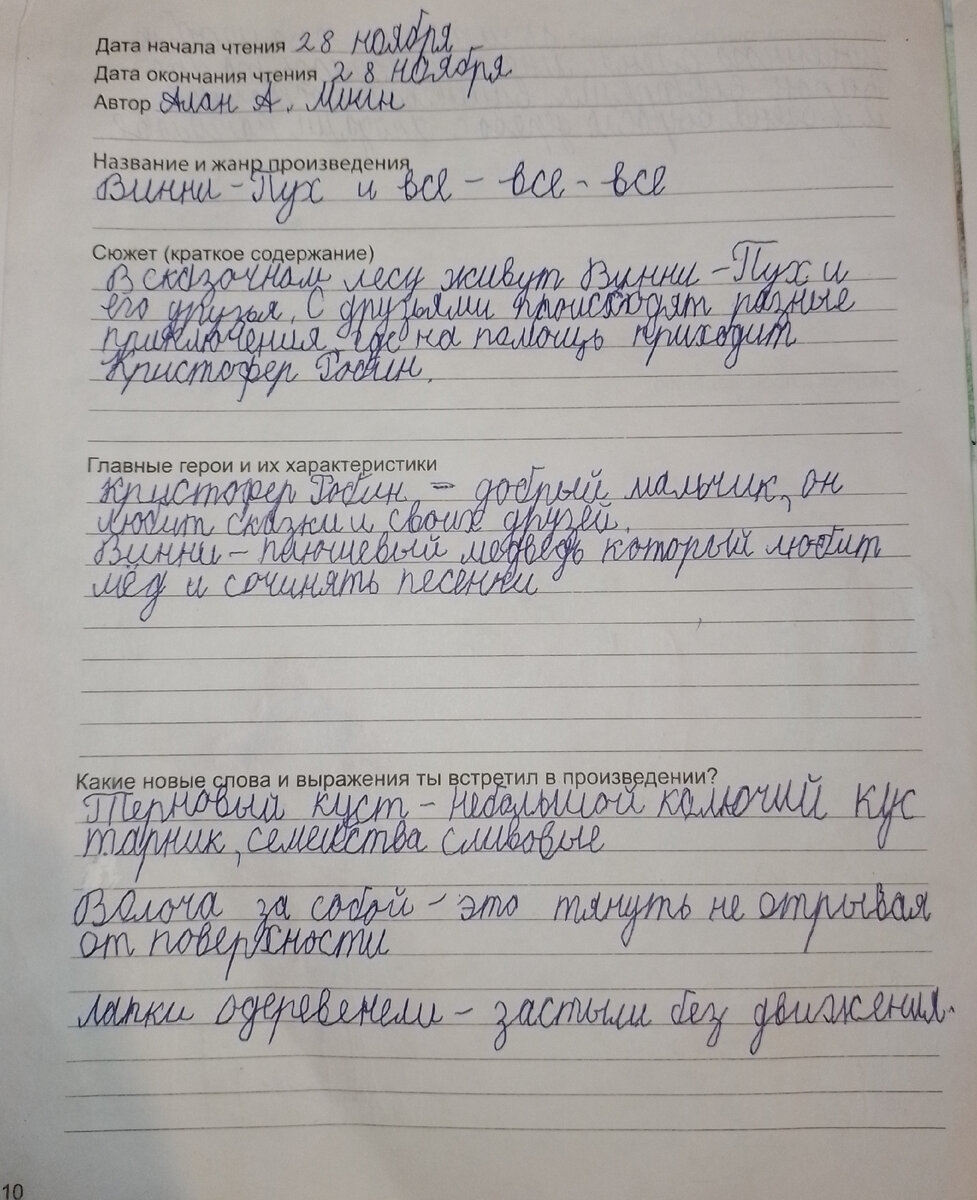 Дата начала чтения 28 ноября
Дата окончания чтения 28 ноября
Автор Алан А. Милн
Название и жанр произведения
Винни-Пух и все - все - все
Сюжет (краткое содержание)
В сказочном лесу живут Винни-Пух и
его друзья. С друзьями происходят разные
приключения, где на помощь приходит
Кристофер Робин.
Главные герои и их характеристики
Кристофер Робин, - добрый мальчик, он
любит сказки и своих друзей.
Винни - плюшевый медведь который любит
мёд и сочинять песенки
Какие новые слова и выражения ты встретил в произведении?
Терновый куст - небольшой колючий кус
тарник, семейства сливовые
Волоча за собой - это тянуть не отрывая
от поверхности
лапки одеревенели - застыли без движения.
10